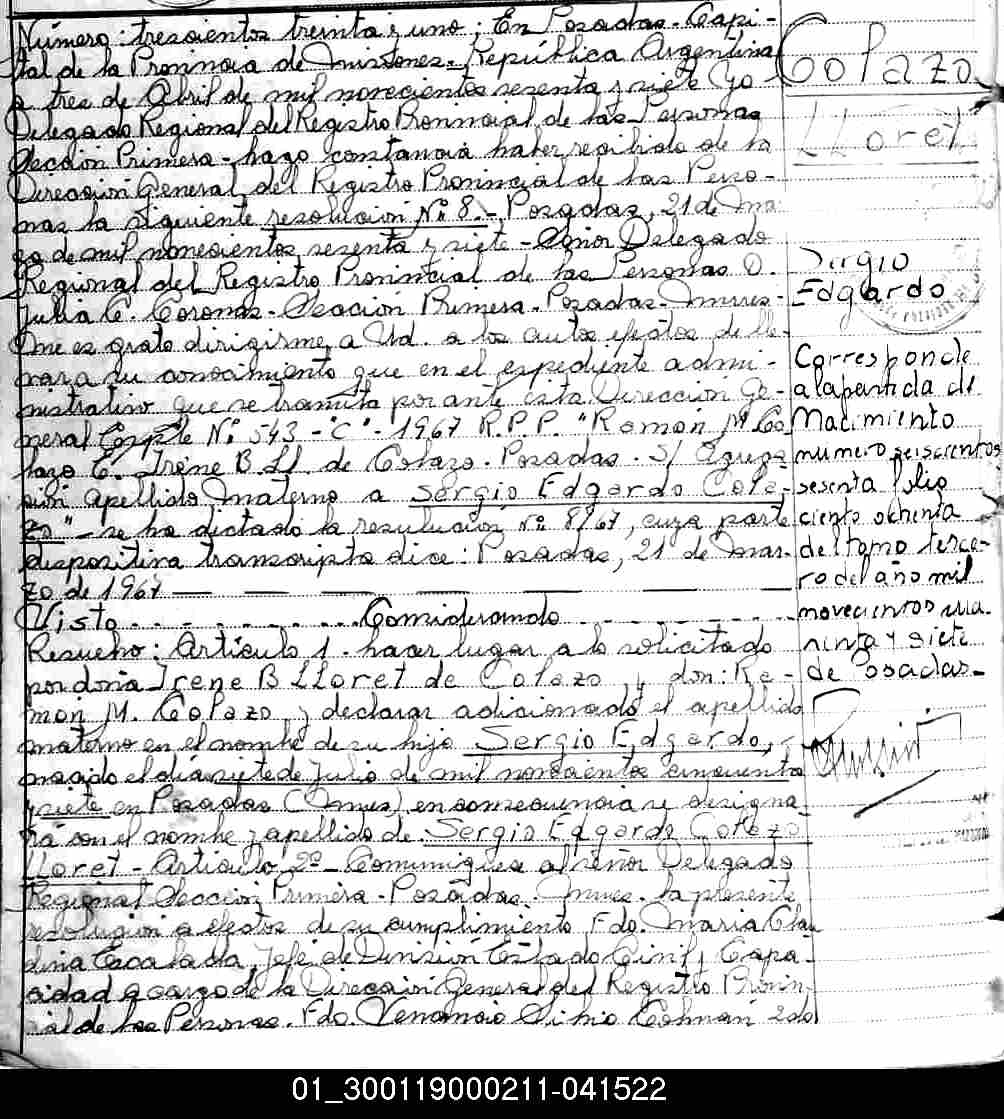 Número: trescientos treinta y uno; En Posadas - Capi-
tal de la Provincia de Misiones - República Argentina
a tres de Abril de mil novecientos sesenta y siete Yo
Delegado Regional del Registro Provincial de las Personas
Sección Primera - hago constancia haber recibido de la
Dirección General del Registro Provincial de las Perso-
nas la siguiente resolución Nº 8. - Posadas, 21 de Mar
zo de mil novecientos sesenta y siete - Señor Delegado
Regional del Registro Provincial de las Personas D.
Julia C. Coronas - Sección Primera - Posadas - Mnes -
Me es grato dirigirme a Ud. a los efectos de lle-
var a su conocimiento que en el expediente admi-
nistrativo que se tramita por ante esta Dirección Ge-
neral Expte Nº 543 - "C" - 1967 R.P.P. "Ramón M. Co
lazo E. Irene B. Ll. de Colazo. Posadas. S/ Agrega
ción apellido Materno a Sergio Edgardo Cola-
zo" - se ha dictado la resolución Nº 8/67, cuya parte
dispositiva transcripta dice: Posadas, 21 de Mar-
zo de 1967
Visto . . . . . . . . Considerando
Resuelvo: Artículo 1 - hacer lugar a lo solicitado
por doña Irene B LLoret de Colazo y don: Ra-
món M. Colazo y declarar adicionado el apellido
materno en el nombre de su hijo Sergio Edgardo,
nacido el día siete de Julio de mil novecientos cincuenta
y siete en Posadas (Mnes) en consecuencia se designa
rá con el nombre y apellido de Sergio Edgardo Colazo
LLoret - Artículo 2º - Comuníquese al señor Delegado
Regional Sección Primera - Posadas. Mnes. la presente
resolución a efectos de su cumplimiento Fdo. María Cla
dina Escalada, Jefe de División Estado Civil y Capa-
cidad a cargo de la Dirección General del Registro Provin
cial de las Personas. Fdo. Venancio Colman 2do
Colazo
LLoret
Sergio
Edgardo
Corresponde
a la partida de
Nacimiento
numero seiscientos
sesenta folio
ciento ochenta
del tomo terce-
ro del año mil
novecientos cua-
renta y siete
de Posadas -
01_300119000211-041522